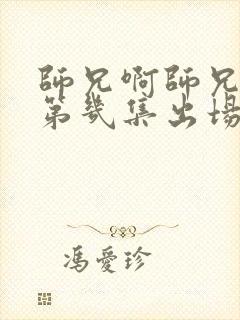 師兄啊師兄
第幾集出場
馮愛珍